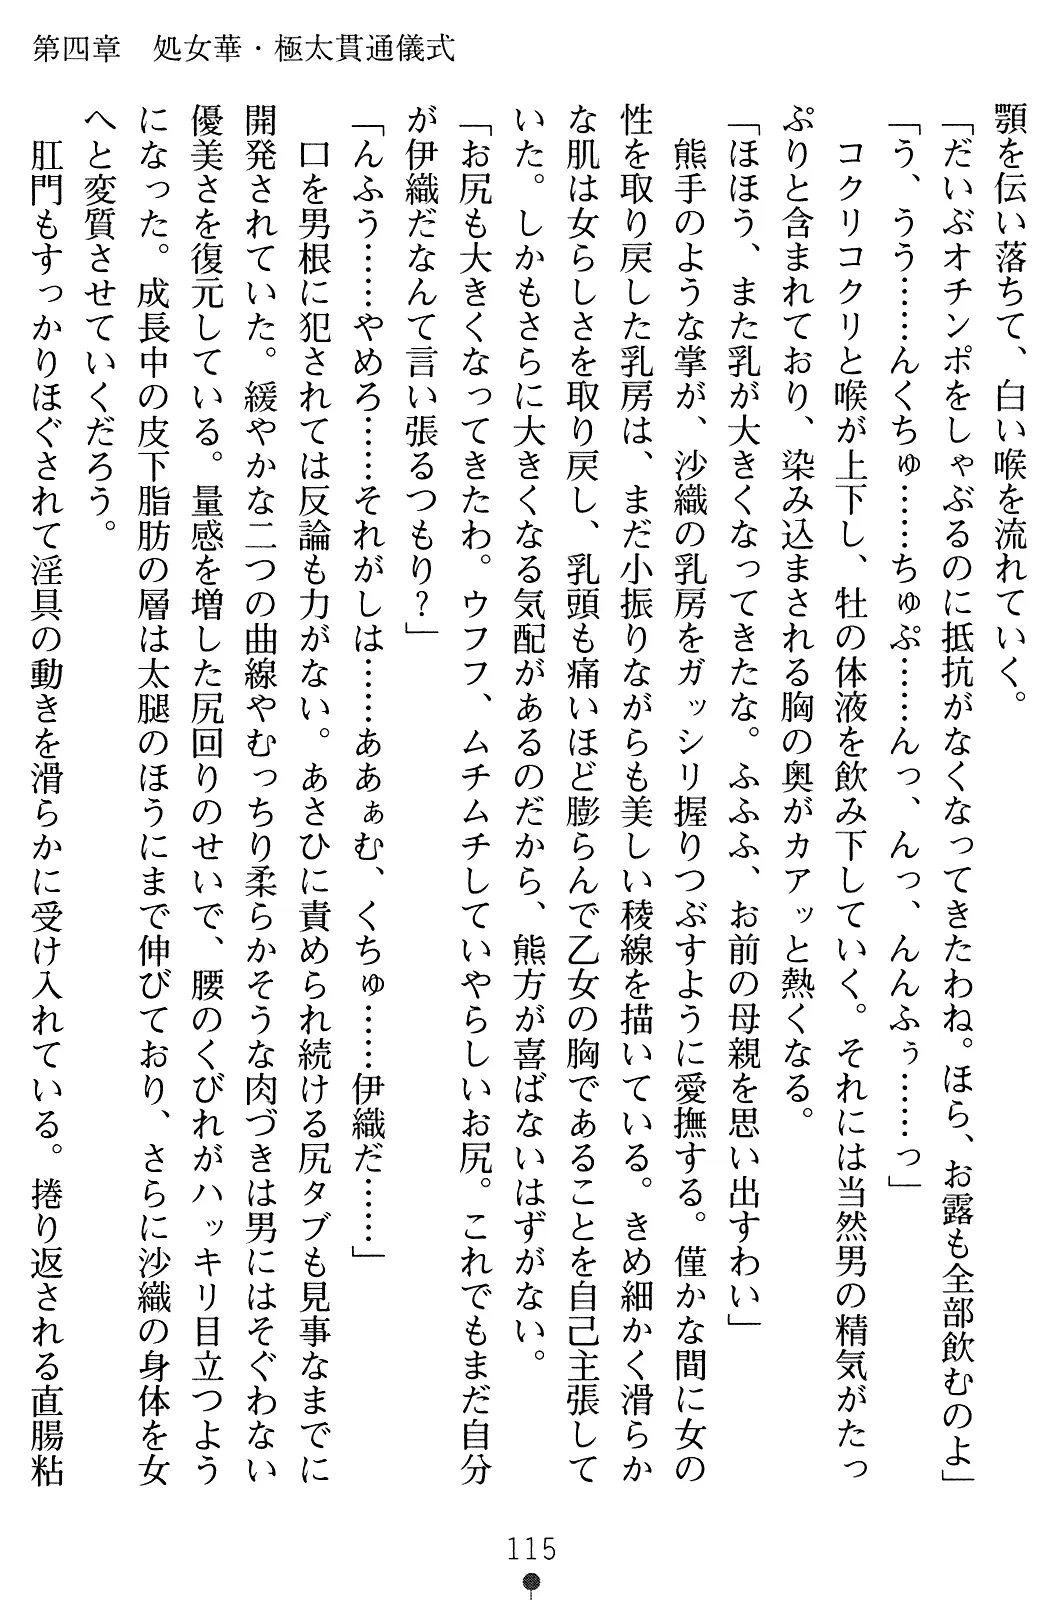 第四章　処女華・極太貫通儀式
顎を伝い落ちて、白い喉を流れていく。
「だいぶオチンポをしゃぶるのに抵抗がなくなってきたわね。ほら、お露も全部飲むのよ」
「う、うう……んくちゅ……ちゅぷ……んっ、んっ、んんふぅ……っ」
コクリコクリと喉が上下し、牡の体液を飲み下していく。それには当然男の精気がたっ
ぷりと含まれており、染み込まされる胸の奥がカアッと熱くなる。
「ほほう、また乳が大きくなってきたな。ふふふ、お前の母親を思い出すわい」
熊手のような掌が、沙織の乳房をガッシリ握りつぶすように愛撫する。僅かな間に女の
性を取り戻した乳房は、まだ小振りながらも美しい稜線を描いている。きめ細かく滑らか
な肌は女らしさを取り戻し、乳頭も痛いほど膨らんで乙女の胸であることを自己主張して
いた。しかもさらに大きくなる気配があるのだから、熊方が喜ばないはずがない。
「お尻も大きくなってきたわ。ウフフ、ムチムチしていやらしいお尻。これでもまだ自分
が伊織だなんて言い張るつもり？」
「んふう……やめろ……それがしは……ああぁむ、くちゅ……伊織だ……」
口を男根に犯されては反論も力がない。あさひに責められ続ける尻タブも見事なまでに
開発されていた。緩やかな二つの曲線やむっちり柔らかそうな肉づきは男にはそぐわない
優美さを復元している。量感を増した尻回りのせいで、腰のくびれがハッキリ目立つよう
になった。成長中の皮下脂肪の層は太腿のほうにまで伸びており、さらに沙織の身体を女
へと変質させていくだろう。
肛門もすっかりほぐされて淫具の動きを滑らかに受け入れている。捲り返される直腸粘
115